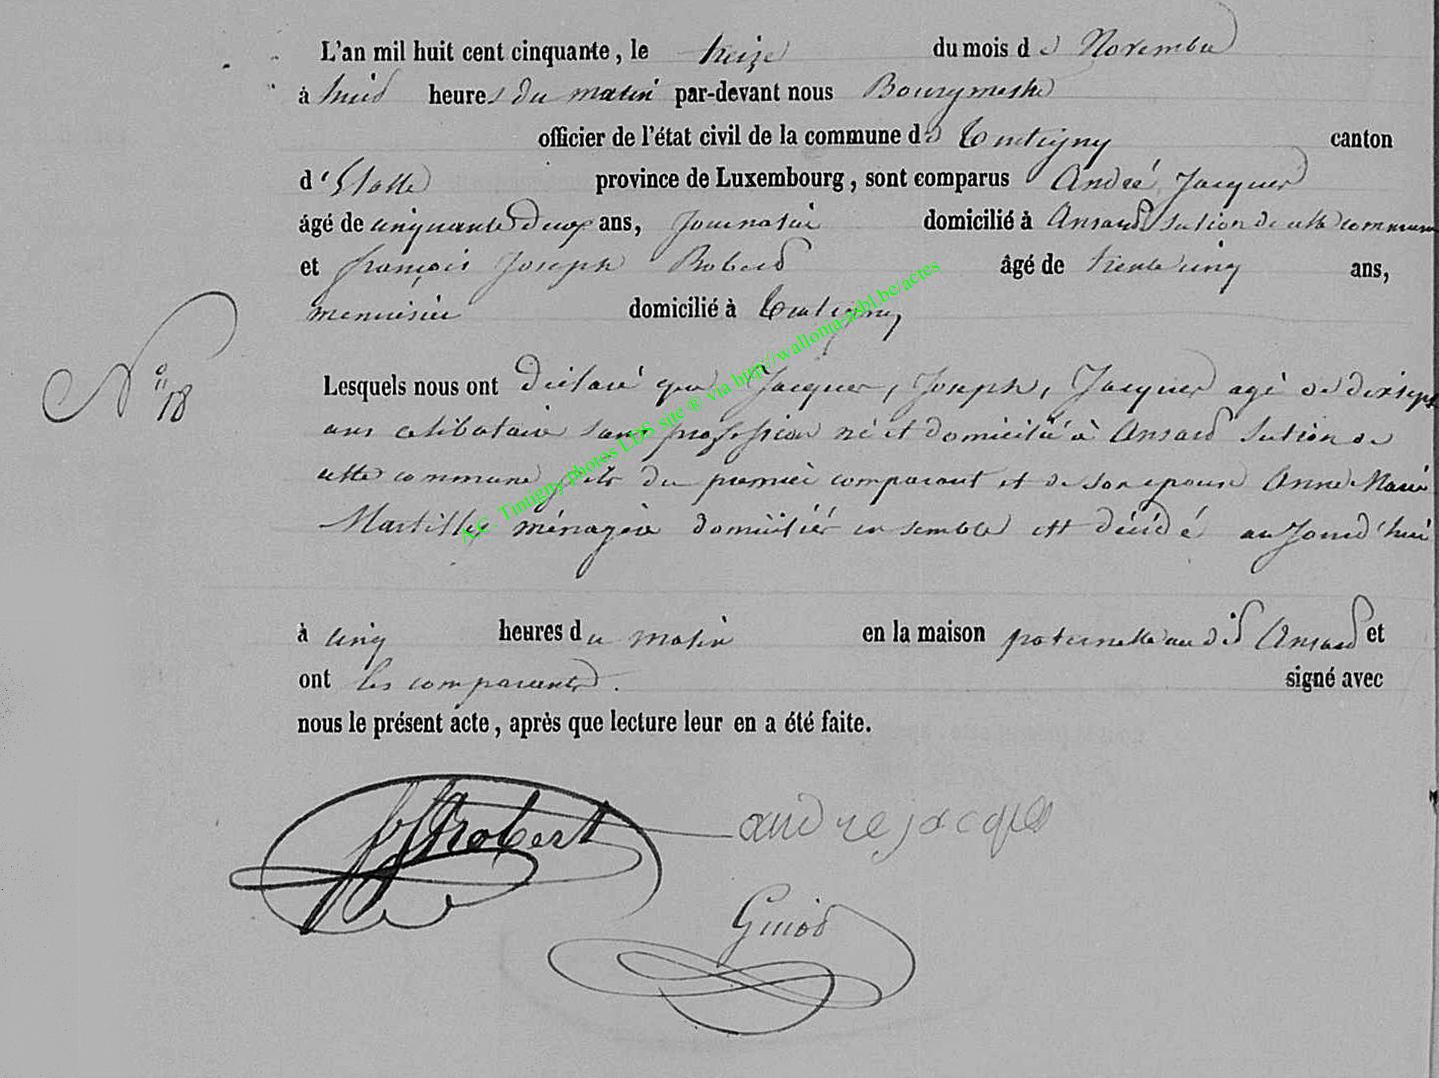 L'an mil huit cent cinquante, le treize du mois de Novembre
à huit heures du matin par-devant nous Bourgmestre
officier de l'état civil de la commune de Tintigny canton
d'Etalle province de Luxembourg, sont comparus André Jacques
âgé de cinquante deux ans, Journalier domicilié à Ansart Section de cette commune
et françois Joseph Robert âgé de trente cinq ans,
menuisier domicilié à Tintigny
N° 18
Lesquels nous ont déclaré que Jacques, Joseph, Jacques agé de dix sept
ans celibataire sans profession né et domicilié à Ansart Section de
cette commune fils du premier comparant et de son epouse Anne Marie
Martilly ménagère domiciliés ensemble est décédé aujourd'hui
à cinq heures du matin en la maison paternelle audit Ansart et
ont les comparants signé avec
nous le présent acte, après que lecture leur en a été faite.
fJRobert andre jacques
Guiot
A.C. Tintigny photos LDS site ® via http://wallonia-asbl.be/actes